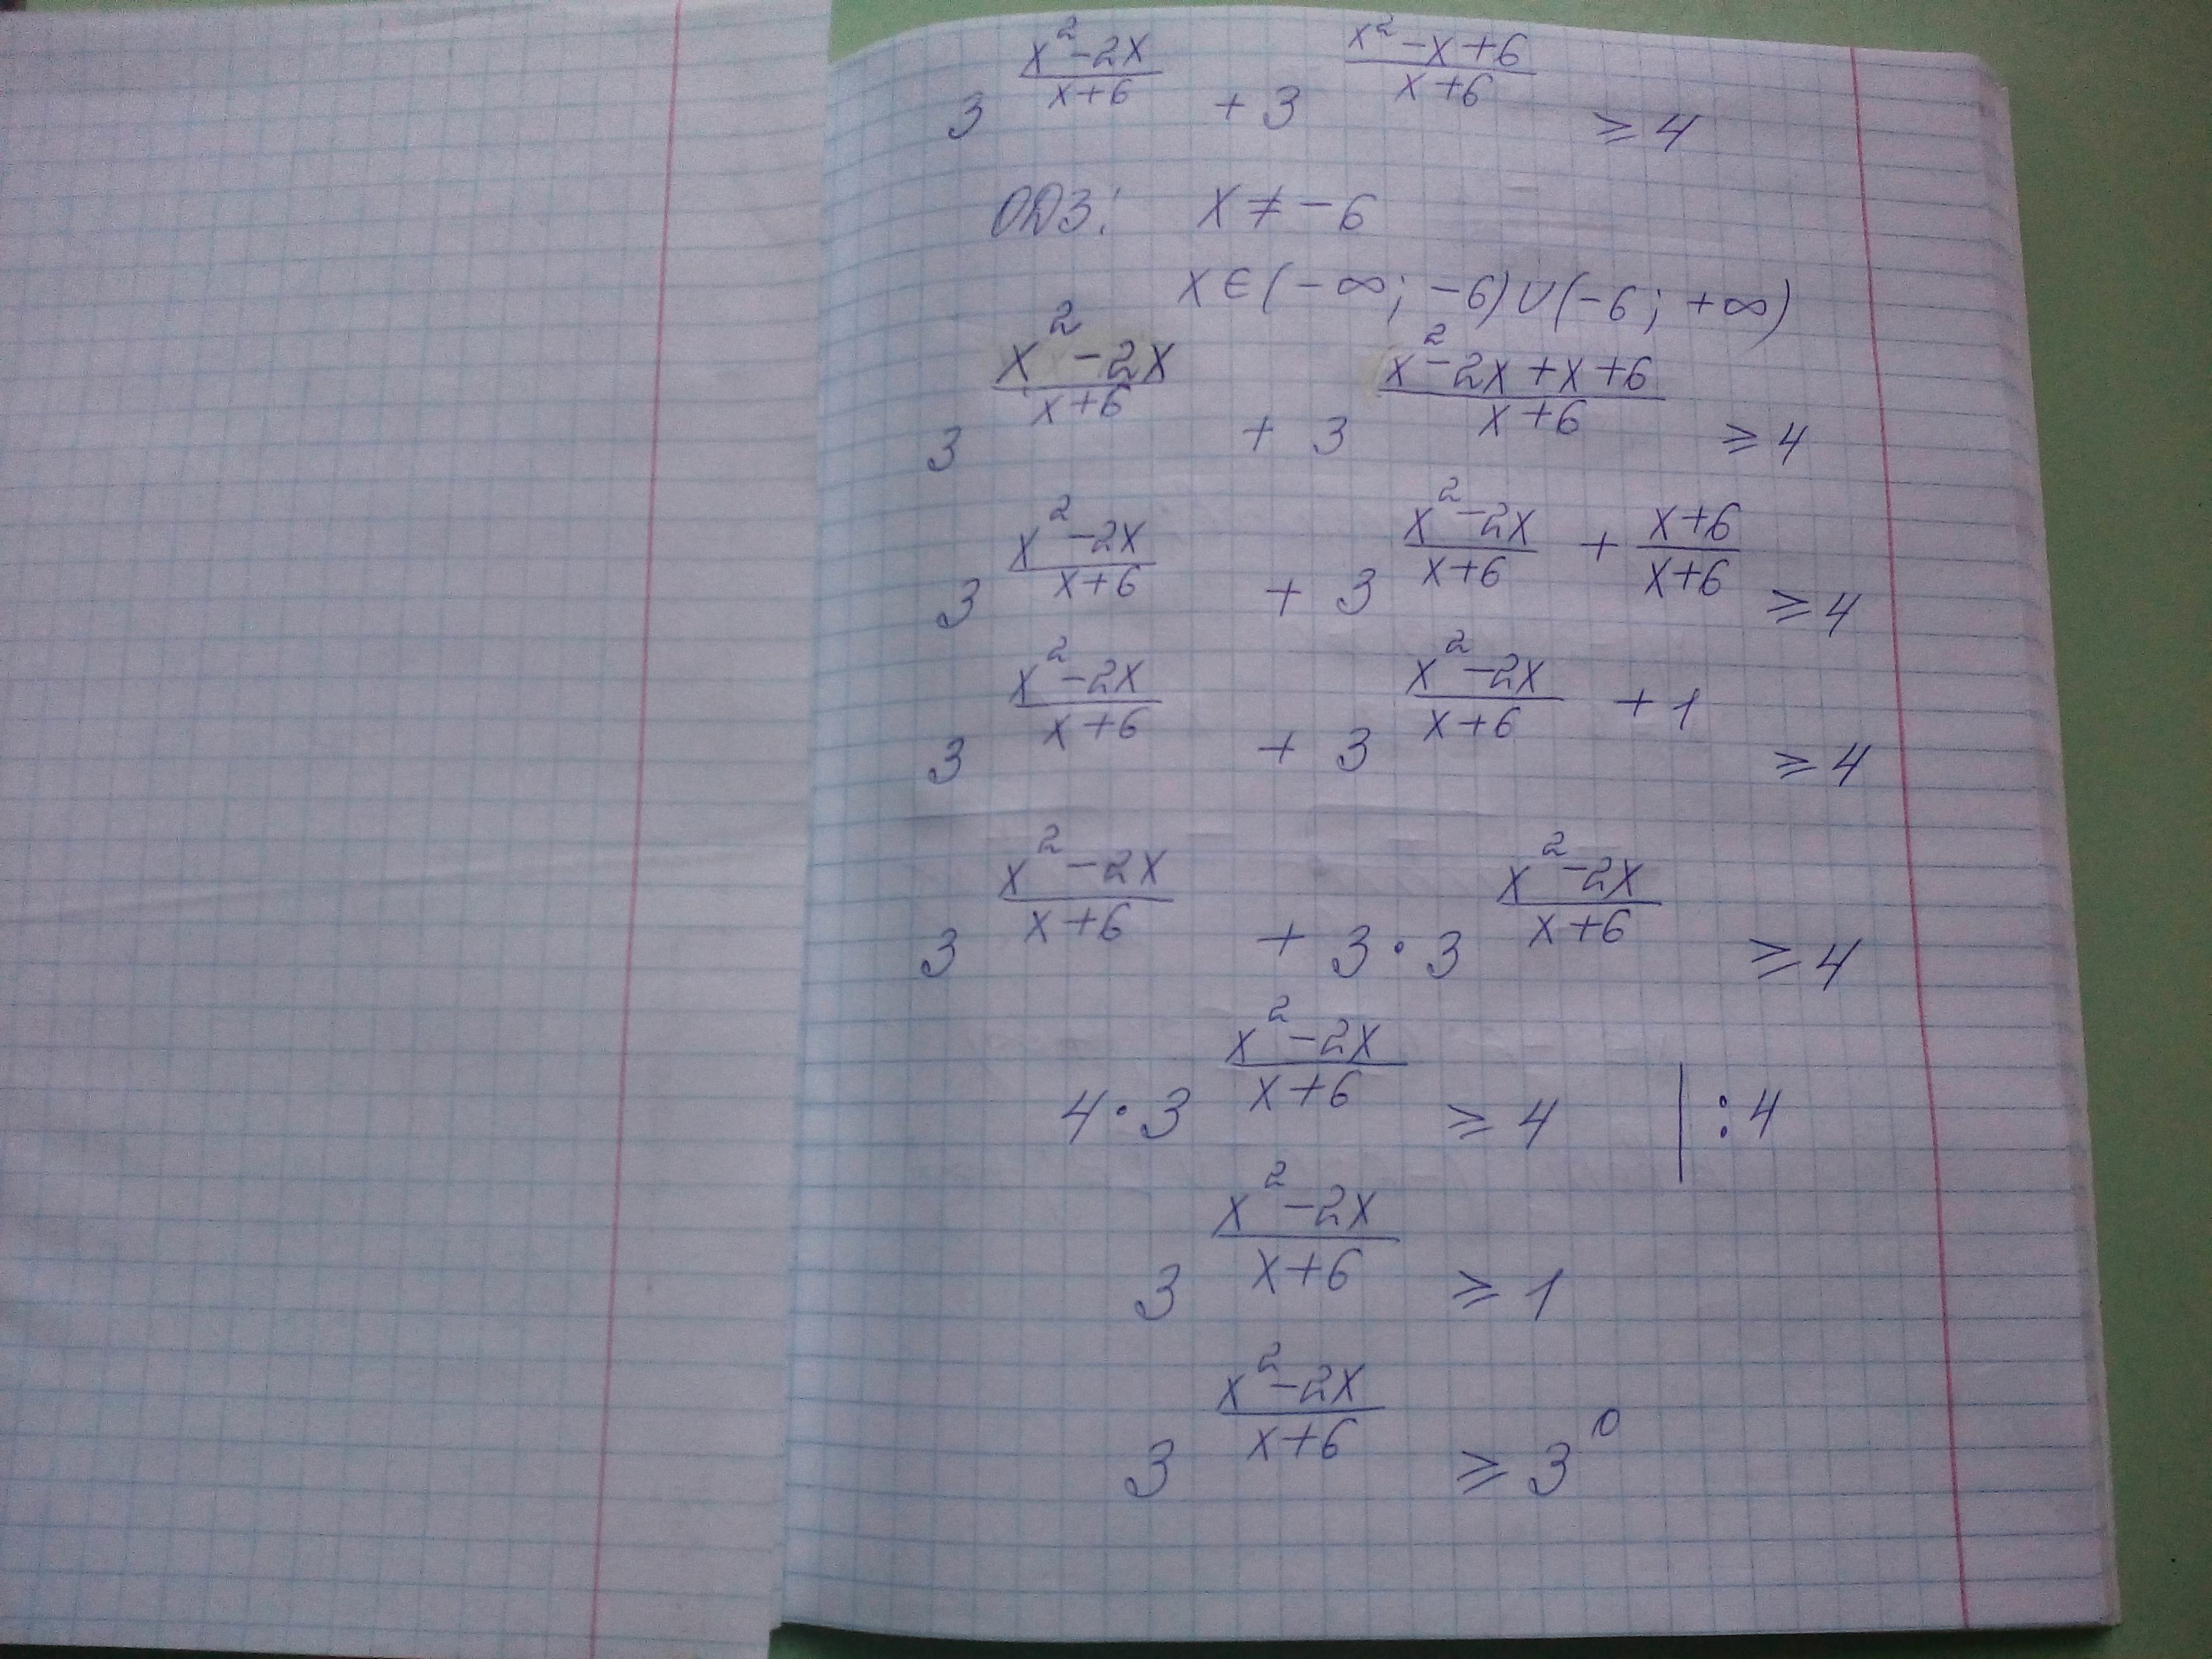 3^((x²-2x)/(x+6)) + 3^((x²-x+6)/(x+6)) ⩾ 4
ОДЗ: x ≠ -6
x ∈ (-∞; -6) ∪ (-6; +∞)
3^((x²-2x)/(x+6)) + 3^((x²-2x+x+6)/(x+6)) ⩾ 4
3^((x²-2x)/(x+6)) + 3^((x²-2x)/(x+6) + (x+6)/(x+6)) ⩾ 4
3^((x²-2x)/(x+6)) + 3^((x²-2x)/(x+6) + 1) ⩾ 4
3^((x²-2x)/(x+6)) + 3·3^((x²-2x)/(x+6)) ⩾ 4
4·3^((x²-2x)/(x+6)) ⩾ 4 | :4
3^((x²-2x)/(x+6)) ⩾ 1
3^((x²-2x)/(x+6)) ⩾ 3^0